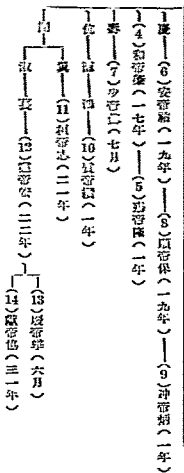 慶 (6)安帝祜(一九年) (8)順帝保(一九年) (9)冲帝炳(一年)
(4)和帝肇(一七年) (5)殤帝隆(一年)
壽 (7)少帝(七月)
伉 鴻 (10)質帝纘(一年)
翼 (11)桓帝志(二一年)
淑 萇 (12)靈帝宏(二二年)
(13)帝(六月)
(14)獻帝協(三一年)